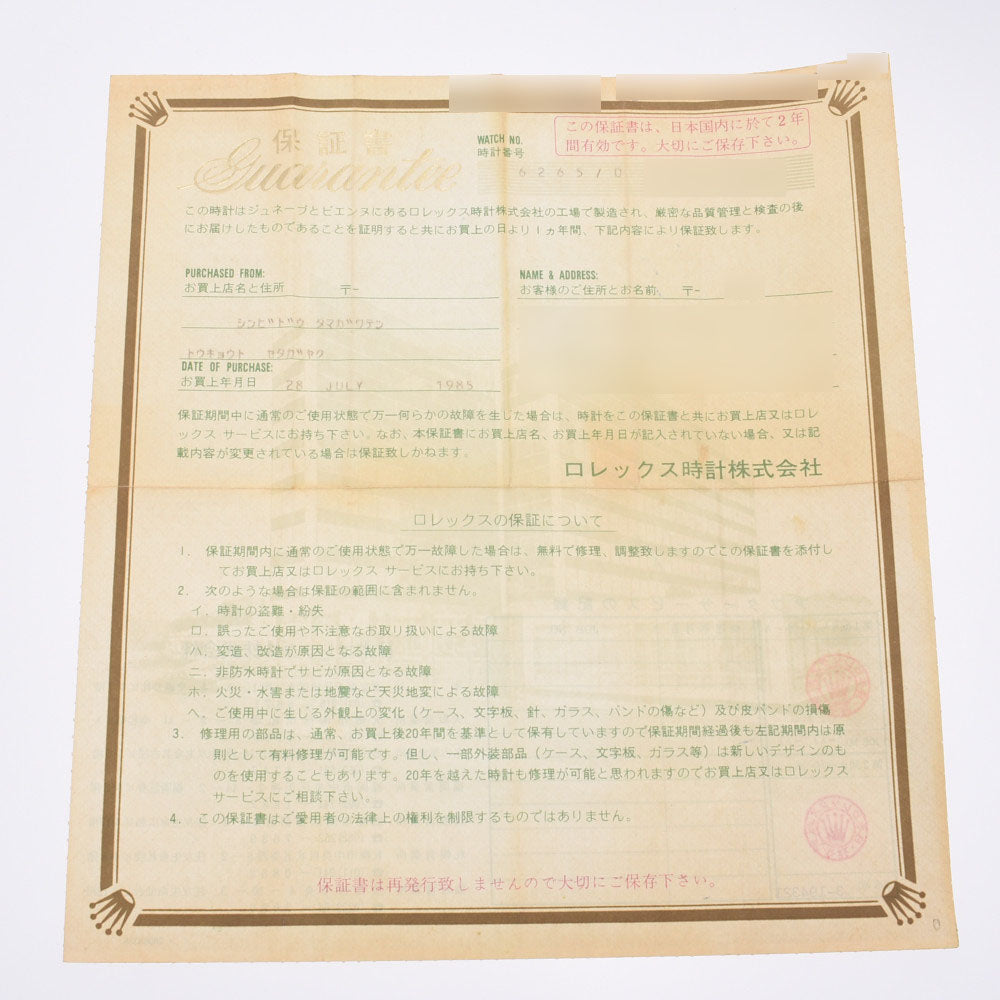 保証書
Guarantee
WATCH NO.
時計番号
6265/0
この保証書は、日本国内に於て2年
間有効です。大切にご保存下さい。
この時計はジュネーブとビエンヌにあるロレックス時計株式会社の工場で製造され、厳密な品質管理と検査の後
にお届けしたものであることを証明すると共にお買上の日より1ヵ年間、下記内容により保証致します。
PURCHASED FROM:
お買上店名と住所 〒-
シンビドウ タマガワテン
トウキョウト セタガヤク
DATE OF PURCHASE:
お買上年月日 28 JULY 1985
NAME & ADDRESS:
お客様のご住所とお名前、 〒-
保証期間中に通常のご使用状態で万一何らかの故障を生じた場合は、時計をこの保証書と共にお買上店又はロレ
ックス サービスにお持ち下さい。なお、本保証書にお買上店名、お買上年月日が記入されていない場合、又は記
載内容が変更されている場合は保証致しかねます。
ロレックス時計株式会社
ロレックスの保証について
1. 保証期間内に通常のご使用状態で万一故障した場合は、無料で修理、調整致しますのでこの保証書を添付し
てお買上店又はロレックス サービスにお持ち下さい。
2. 次のような場合は保証の範囲に含まれません。
イ. 時計の盗難・紛失
ロ. 誤ったご使用や不注意なお取り扱いによる故障
ハ. 変造、改造が原因となる故障
ニ. 非防水時計でサビが原因となる故障
ホ. 火災・水害または地震など天災地変による故障
ヘ. ご使用中に生じる外観上の変化(ケース、文字板、針、ガラス、バンドの傷など)及び皮バンドの損傷
3. 修理用の部品は、通常、お買上後20年間を基準として保有していますので保証期間経過後も左記期間内は原
則として有料修理が可能です。但し、一部外装部品(ケース、文字板、ガラス等)は新しいデザインのも
のを使用することもあります。20年を越えた時計も修理が可能と思われますのでお買上店又はロレックス
サービスにご相談下さい。
4. この保証書はご愛用者の法律上の権利を制限するものではありません。
保証書は再発行致しませんので大切にご保存下さい。